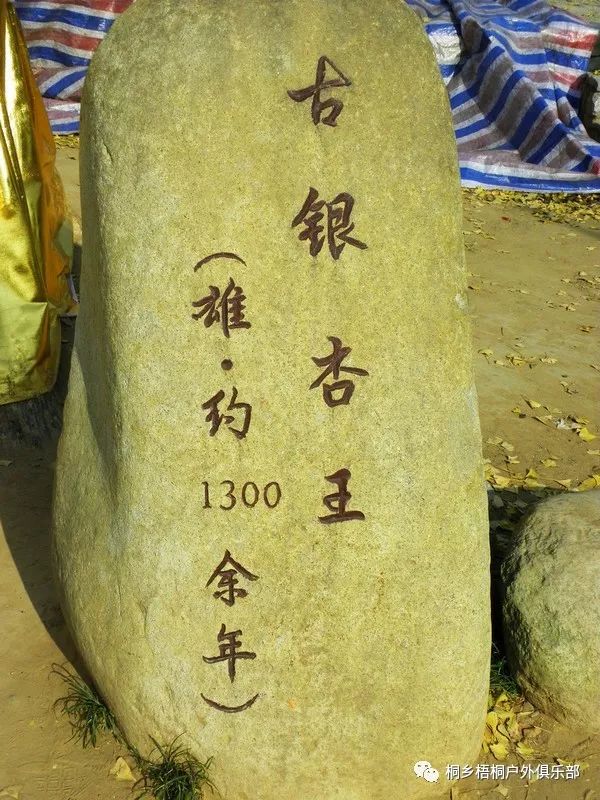 古银杏王
（雄·约1300余年）
桐乡梧桐户外俱乐部